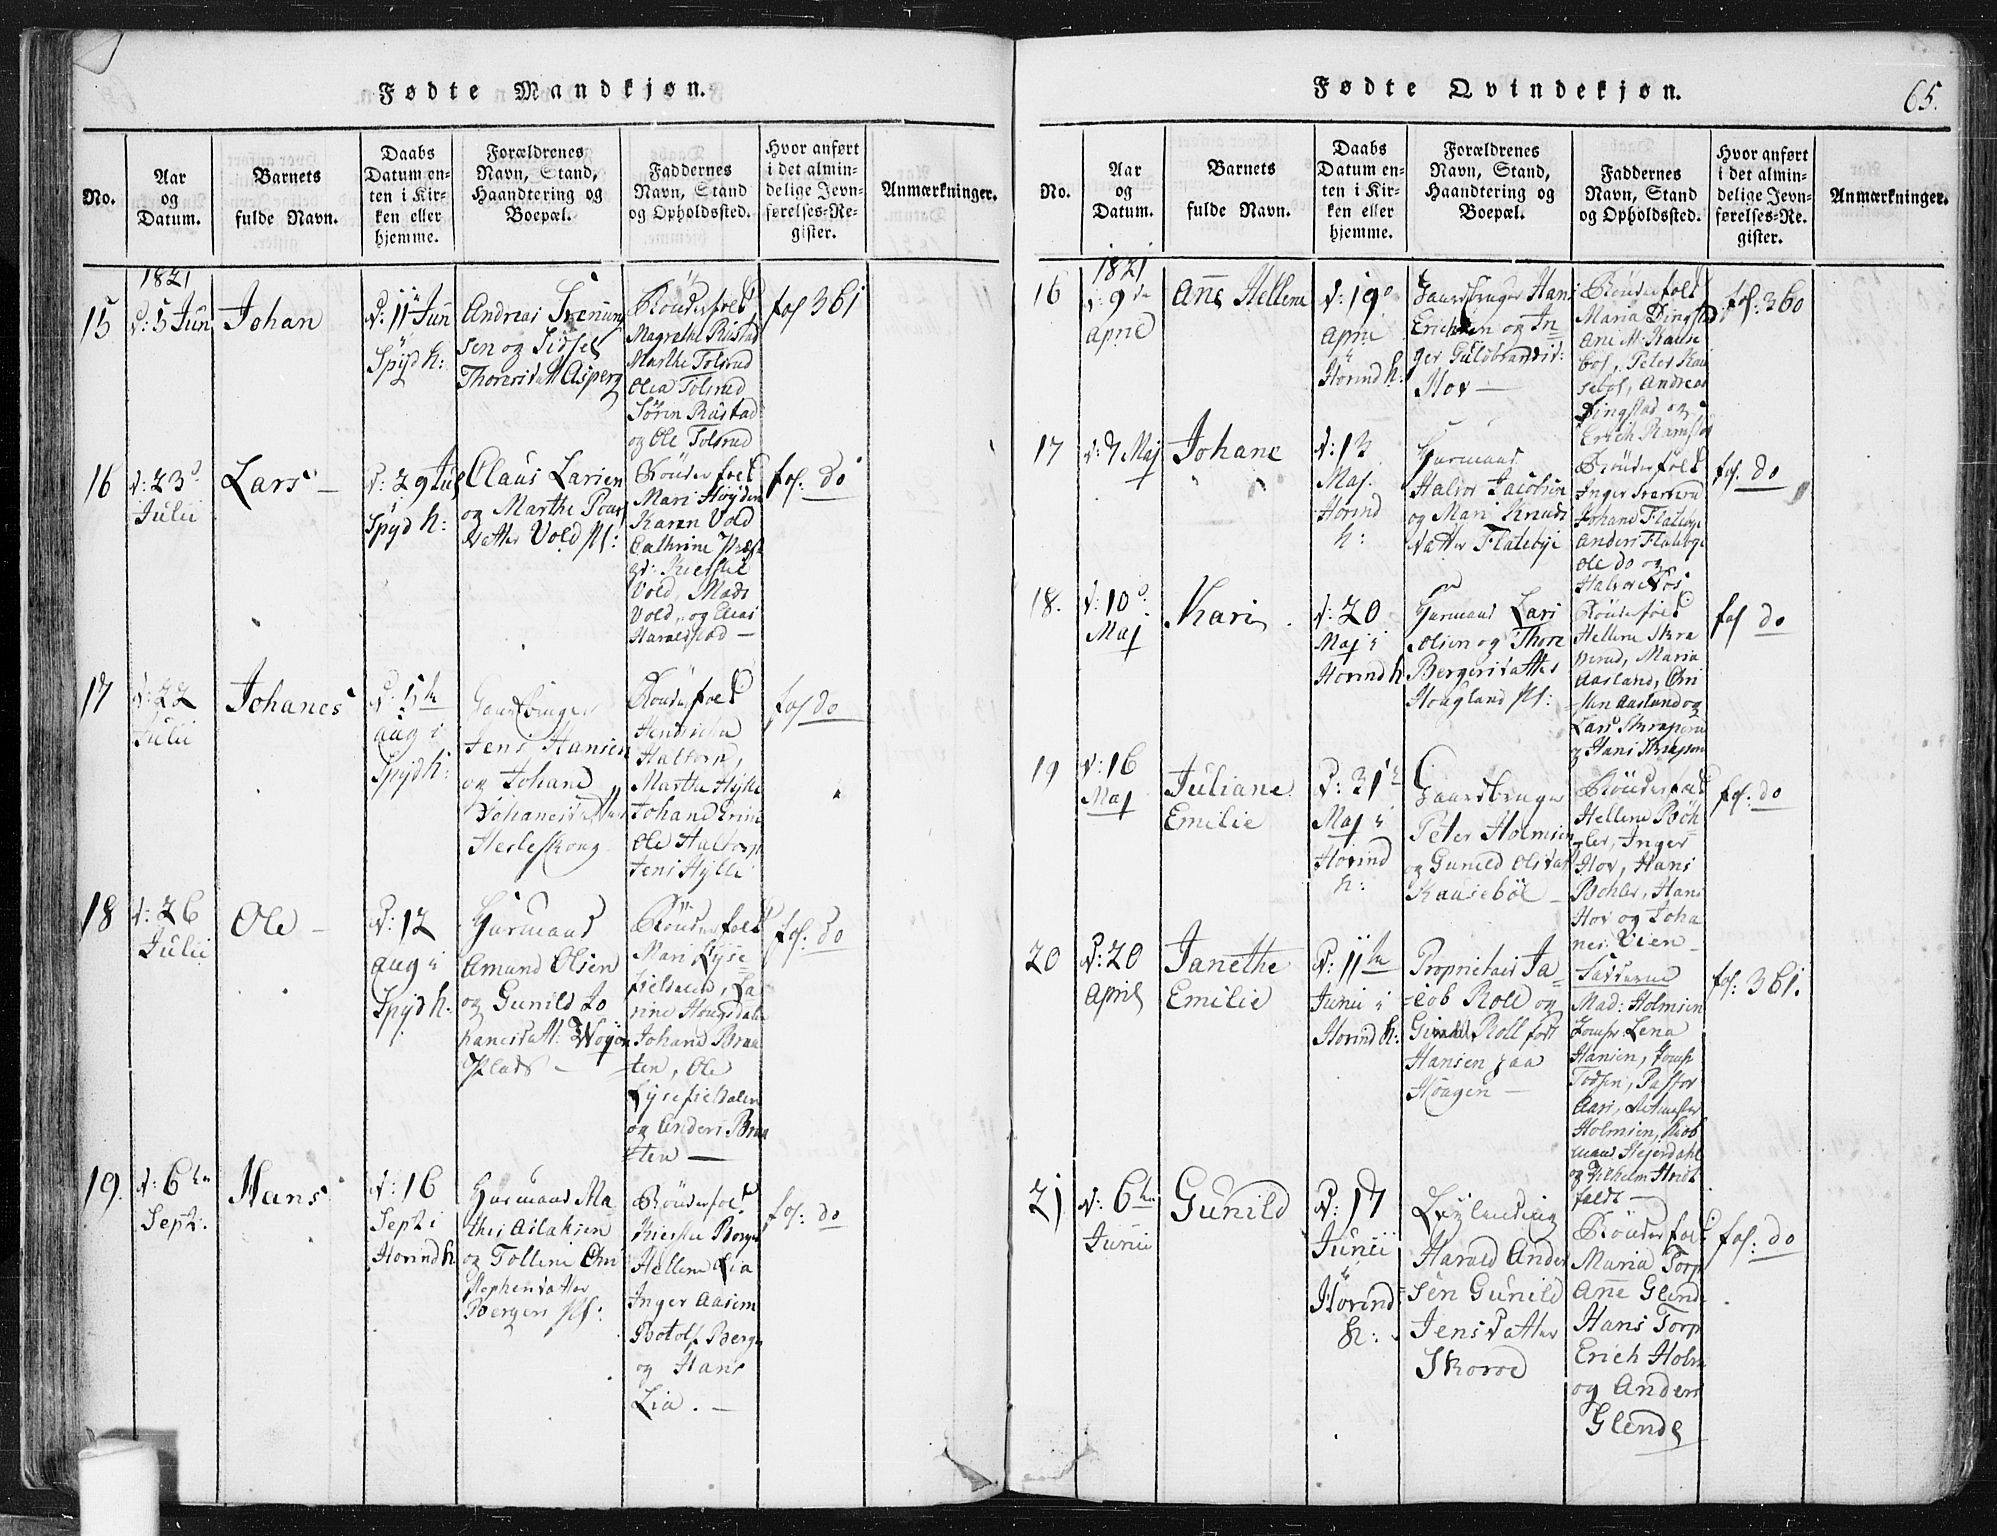 Fødte Mandkjøn.
No.
Aar
og
Datum.
Barnets
fulde Navn.
Daabs
Datum en-
ten i Kir-
ken eller
hjemme.
Forældrenes
Navn, Stand,
Haandtering og
Boepæl.
Faddernes
Navn, Stand
og Opholdssted.
Hvor anført
i det almin-
delige Jevn-
førelses-Re-
gister.
Anmærkninger.
1821
15
d: 5 Jun
Johan
d: 11 Jun
i
Spyd k:
Andreas
sen og Sidsel
Thoresdatt Asperg
Bönderfolk
Magrethe Rustad
Marthe Tolsrud
Olea Tolsrud
Sören Rustad
og Ole Tolsrud
fol 361
16
d: 23d
Julii
Lars –
d: 29 Jul
i
Spyd k:
Claus Larsen
og Marthe
datter Vold pl:
Bönderfolk
Mari Höyden
Karen Vold
Cathrine
Vold, Mads
Vold, og Elias
Haraldstad –
fol: do
17
d: 22
Julii
Johanes
d: 5te
aug i
Spyd k:
Gaardbruger
Jens Hansen
og Johane
Johanesdatter
Hesleskoug
Bönderfolk
Hendricka
Haltorp,
Marthe Hylle
Johane Erine
Ole Haltorp
Jens Hylle
fol do
18
d: 26
Julii
Ole –
d: 12
aug i
Spyd k:
Huusmand
Amund Olsen
og Gunild Jo
hanesdatt:
Plads –
Bönderfolk
Mari Lyse-
fieldalen, La
rine Hougsdalen
Johane Braa
ten, Ole
Lysefieldalen
og Anders Braa
ten –
fol: do
19.
d: 6te
Sept:
Hans
d: 16
Sept i
Hovind k
Huusmand Ma
thes Aslaksen
og Tolline Chri
stephersdatter
Bergers pl:
Bönderfolk
Kierstie Berger
Hellene Lia
Inger Aasem
Botolf Berger
og Hans
Lia. –
fol: do
Fødte Qvindekjøn.
65.
No.
Aar
og
Datum.
Barnets
fulde Navn.
Daabs
Datum en-
ten i Kir-
ken eller
hjemme.
Forældrenes
Navn, Stand,
Haandtering og
Boepæl.
Faddernes
Navn, Stand
og Opholdssted.
Hvor anført
i det almin-
delige Jevn-
førelses-Re-
gister.
Anmærkninger.
1821
16
d: 9de
April
Ane Hellene
d: 19de
April
i
Hovind k:
Gaardbruger Hans
Erichsen og In-
ger Guldbrandsd:
Hov –
Bönderfolk
Maria Dingstad
Ane M. Kause
böl, Peter Kau
seböl, Andreas
Dingstad og
Erich Ramstad
fol: 360
17
d: 7 Maj
Johane
d: 13
Maj.
Hovind
k:
Huusmand
Halvor Jacobsen
og Mari Knuds
datter Flatebye
Bönderfolk
Inger
Johane Flatebye
Anders Flatebye
Ole do og
Halvor
fol: do
18.
d: 10d.
Maj
Kari
d: 20
Maj i
Hovind k
Huusmand Lars
Olsen og Thore
Bergersdatter
Hougland pl:
Bönderfolk
Hellene Skra
perud, Maria
Aasland, Chri
stian Aaslund og
Lars Skraperud
og Hans Skraperu
fol do
19
d: 16
Maj
Juliane
Emilie
d: 31te
Maj i
Hovind
k:
Gaardbruger
Peter Holmsen
og Gunild Olsdatt
Kauseböl –
Bönderfolk
Hellene Böh-
ler, Inger
Hov, Hans
Bohler, Hans
Hov og Joha
nes Vien –
fol: do
20
d: 20
April
Janethe
Emilie
d: 11te
Junii i
Hovind k:
Proprietair Ja-
cob Roll og
Roll født
Hansen paa
Hougen –
Fadderne
Mad: Holmsen
Jomfr. Lena
Hansen, Jomfr
Pastor
Aars, Ritmester
Holmsen,
mand Hejerdahl
og Vilhelm
feldt –
fol: 361.
21
d: 6te
Junii
Gunild
d: 17
Junii
i
Hovind
k:
Leylending
Harald Ander
sen Gunild
Jensdatter
Skoroe
Bönderfolk
Maria Torp
Ane Glende
Hans Torp
Erich Holm
og Anders
Glende
fol: do